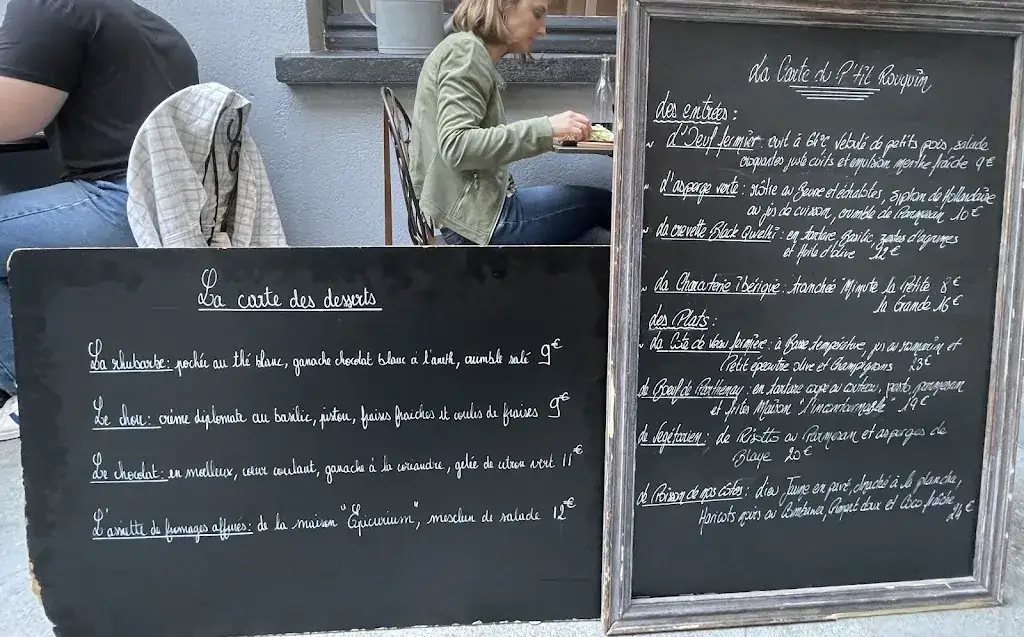 La carte des desserts
La rhubarbe: pochée au thé blanc, ganache chocolat blanc à l'aneth, crumble salé 9€
Le chou: crème diplomate au basilic, pistou, fraises fraiches et coulis de fraises 9€
Le chocolat: en moelleux, cœur coulant, ganache à la coriandre, gelée de citron vert 11€
L'assiette de fromages affinés: de la maison "Epicurium", mesclun de salade 12€
La Carte du P'tit Rouquin
Les entrées:
L'Oeuf fermier: cuit à 64°C velouté de petits pois, salade
croquantes juste cuits et emulsion menthe fraîche 9€
L'asperge verte: rôtie au Beurre et échalotes, siphon de Hollandaise
au jus de cuisson, crumble de Parmesan 10€
La crevette Black Qwehli: en tartare, Basilic, zestes d'agrumes
et Huile d'olive 12€
La Charcuterie ibérique: tranchée Minute la Petite 8€
la Grande 16€
Les Plats:
La Côte de veau fermière: à Basse température, jus au romarin et
Petit épeautre olive et champignons 23€
Le Boeuf de Parthenay: en tartare coupé au couteau, pesto, parmesan
et frites Maison "L'incontournable" 19€
Le Végétarien: Le Risotto au Parmesan et asperges de
Blaye 20€
Le Poisson de nos côtes: Lieu Jaune en pavé, snacké à la plancha,
Haricots noirs au Combawa, Piment doux et Coco fraîche
24€